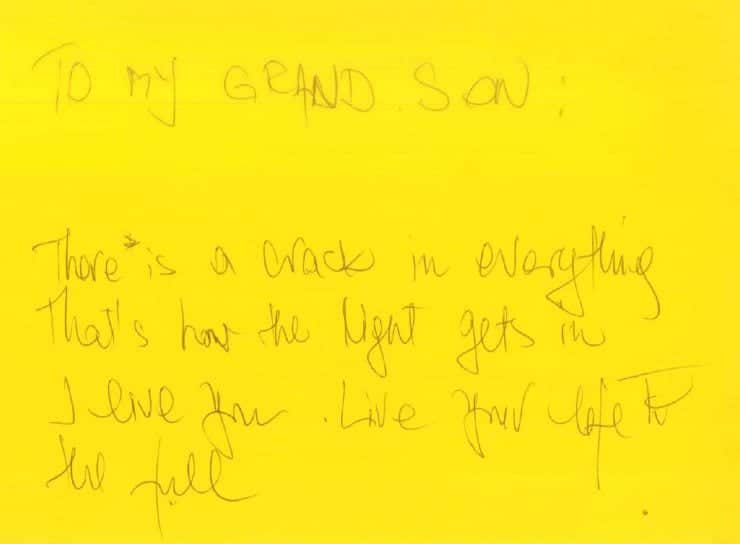 TO MY GRAND SON:
There is a crack in everything
That's how the light gets in
I live you. Live your life to
the full